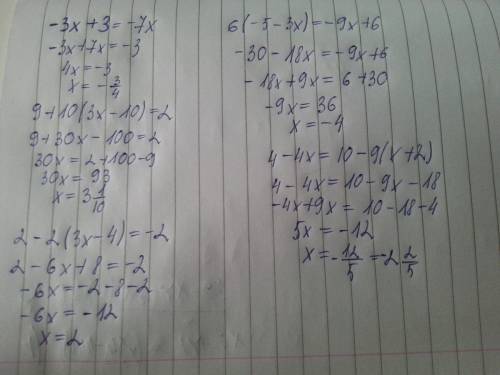 -3x + 3 = -7x
-3x+7x = -3
4x = -3
x = -3/4
9+10(3x-10)=2
9+30x-100=2
30x = 2+100-9
30x = 93
x = 3 1/10
2-2(3x-4)=-2
2-6x+8=-2
-6x=-2-8-2
-6x = -12
x=2
6(-5-3x)=-9x+6
-30-18x=-9x+6
-18x+9x = 6+30
-9x = 36
x = -4
4-4x = 10-9(x+2)
4-4x=10-9x-18
-4x+9x = 10-18-4
5x = -12
x = -12/5 = -2 2/5